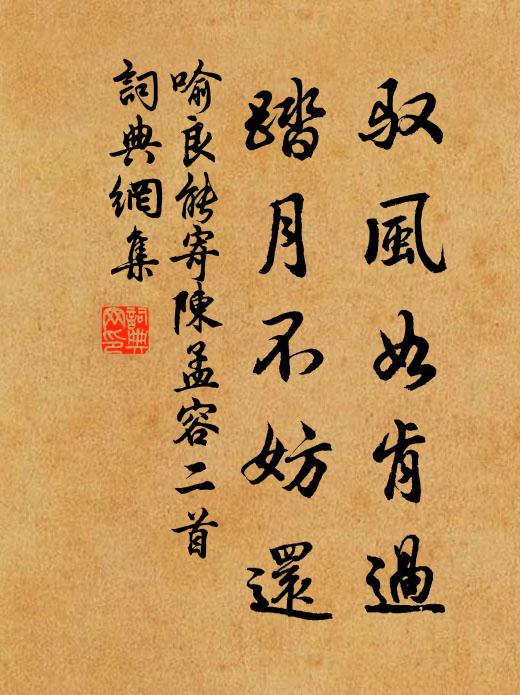 驭風如肯過
踏月不妨還
喻良能寄陳孟容二首
詞典網集
詞典网印